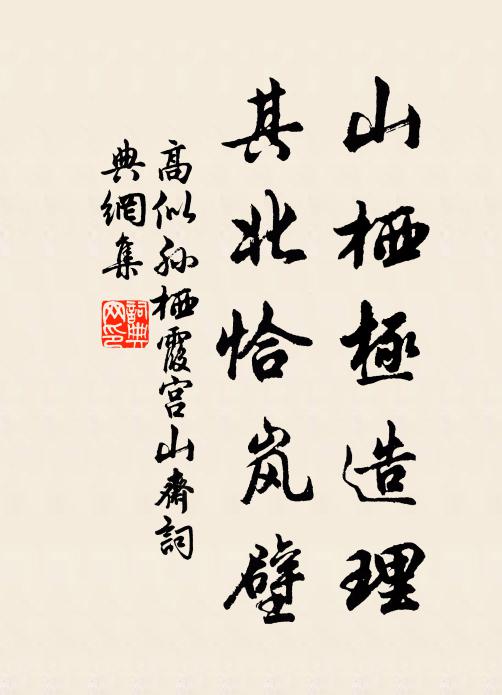 山栖極造理
其北恰岚壁
高似孙栖霞宫山齋詞
典網集
詞典网印